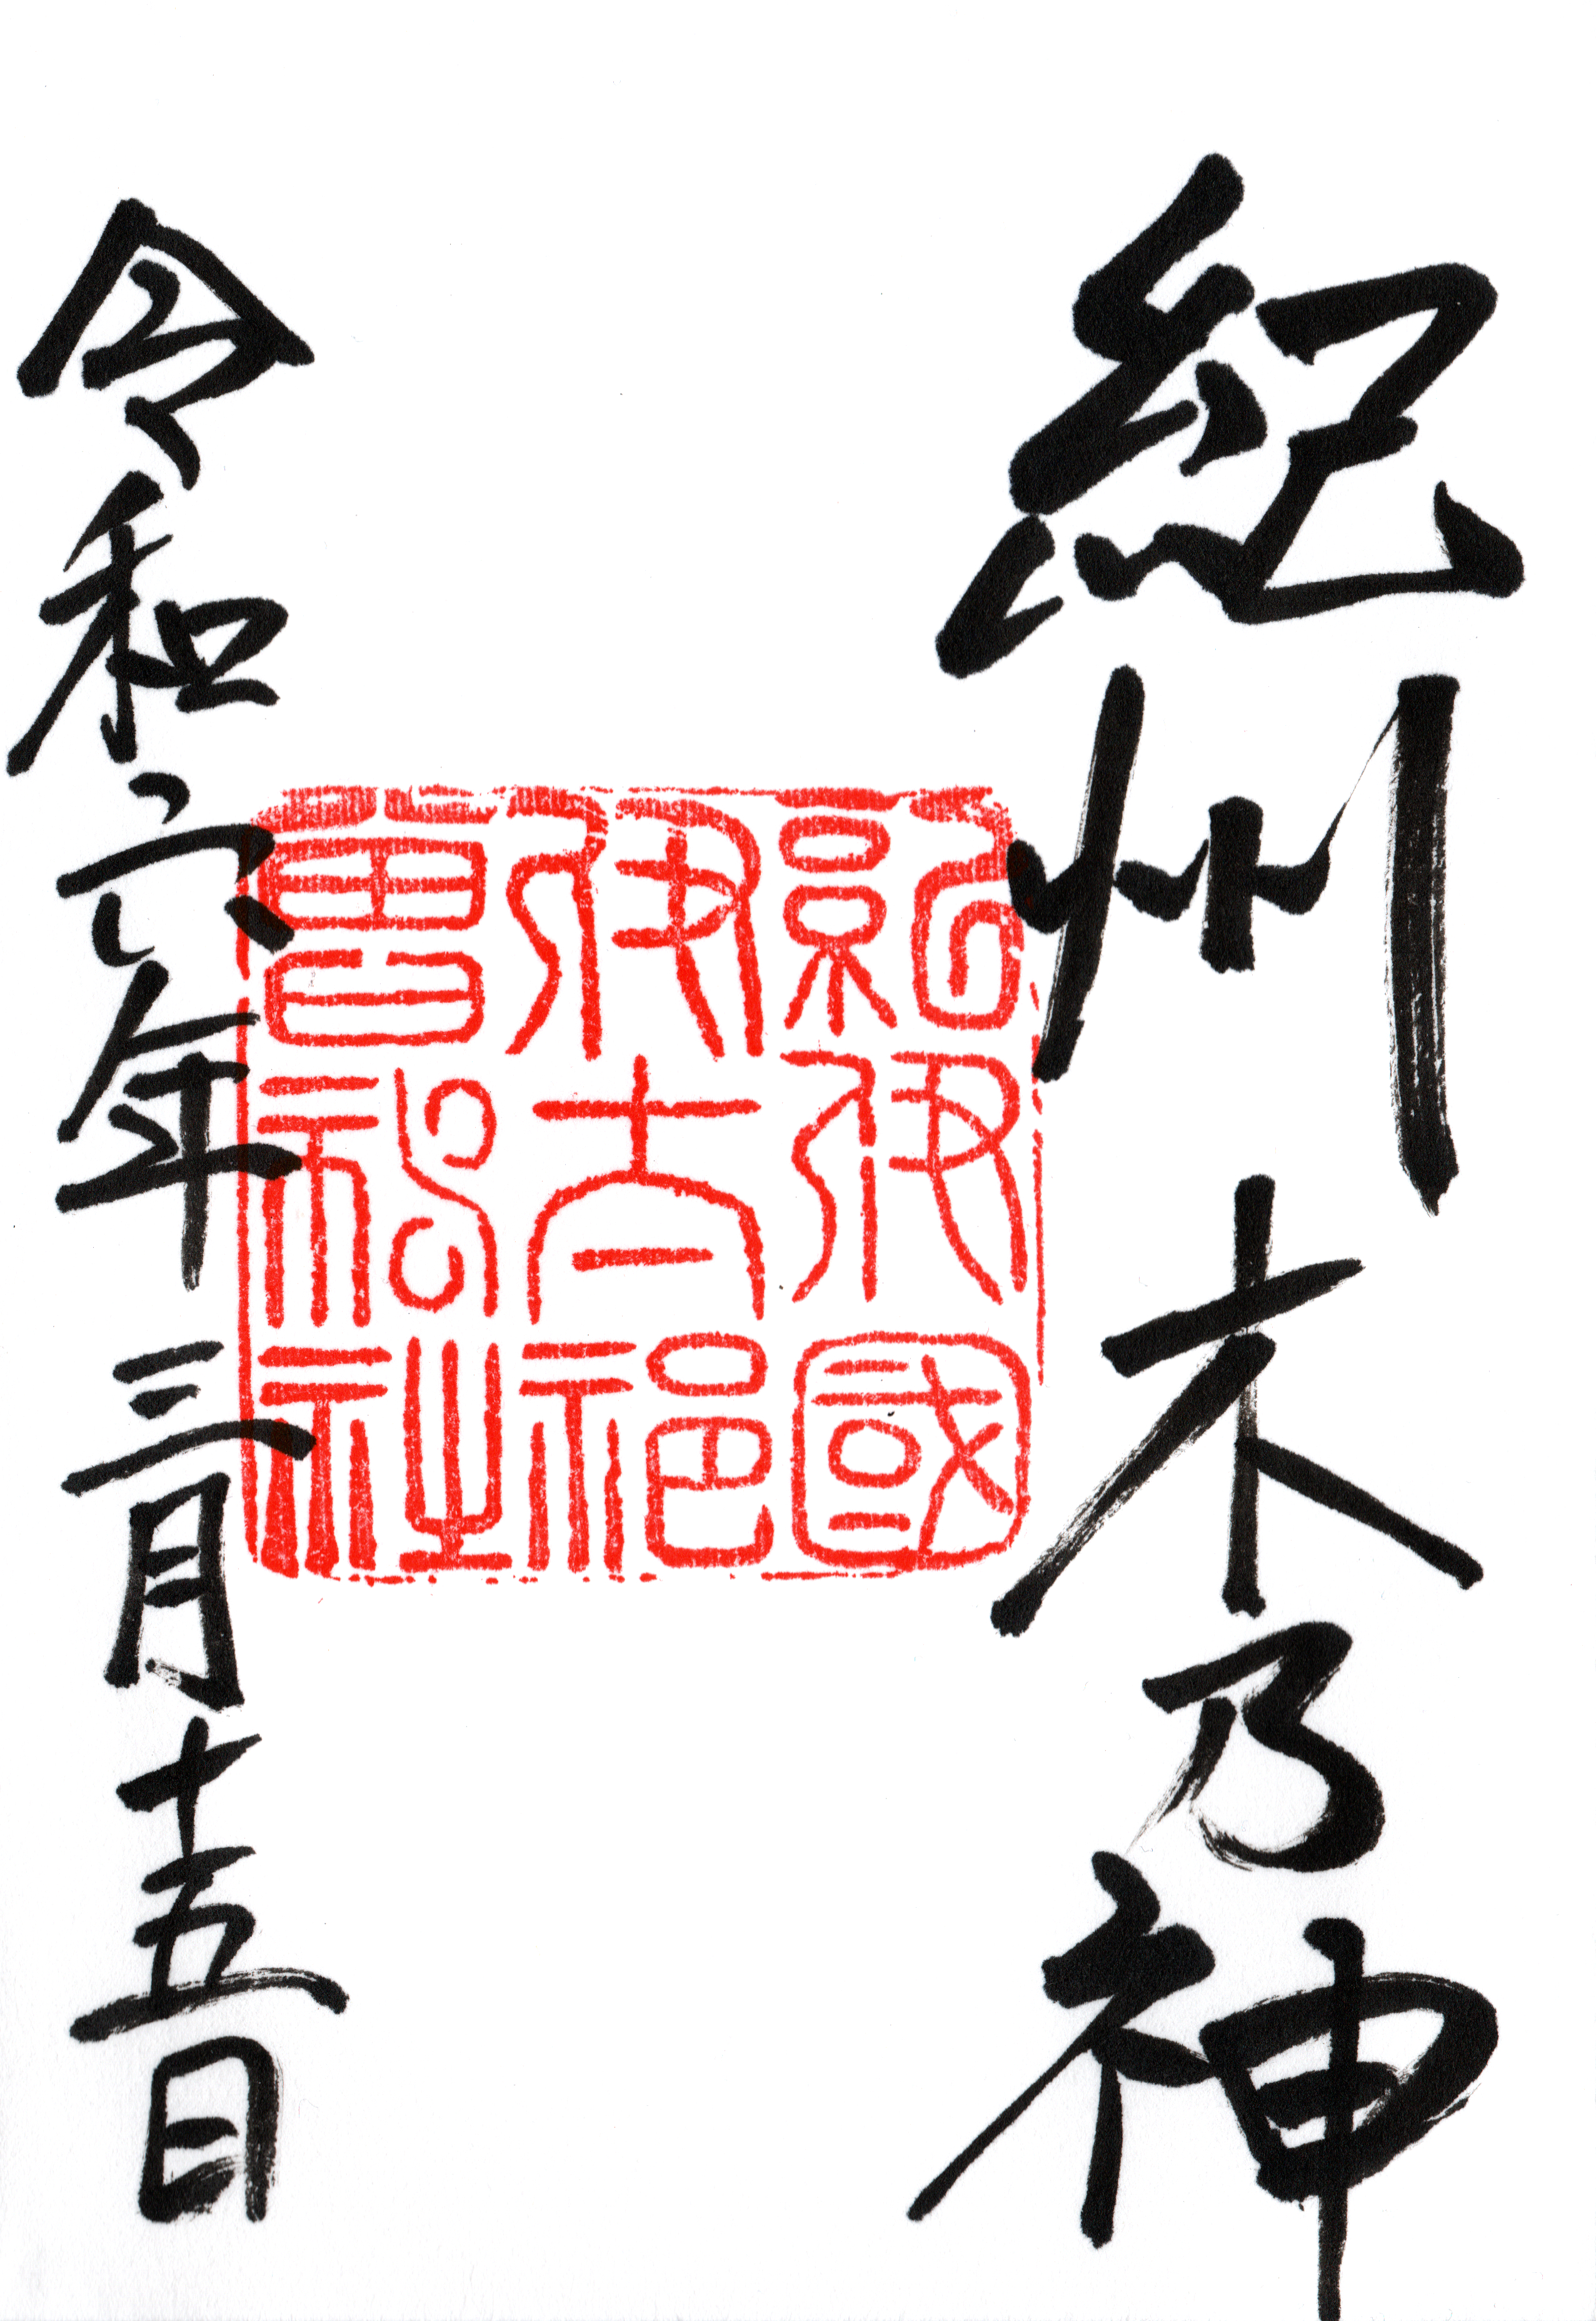 紀州木乃神
紀伊國
伊太祁
曽神社
令和六年三月十五日